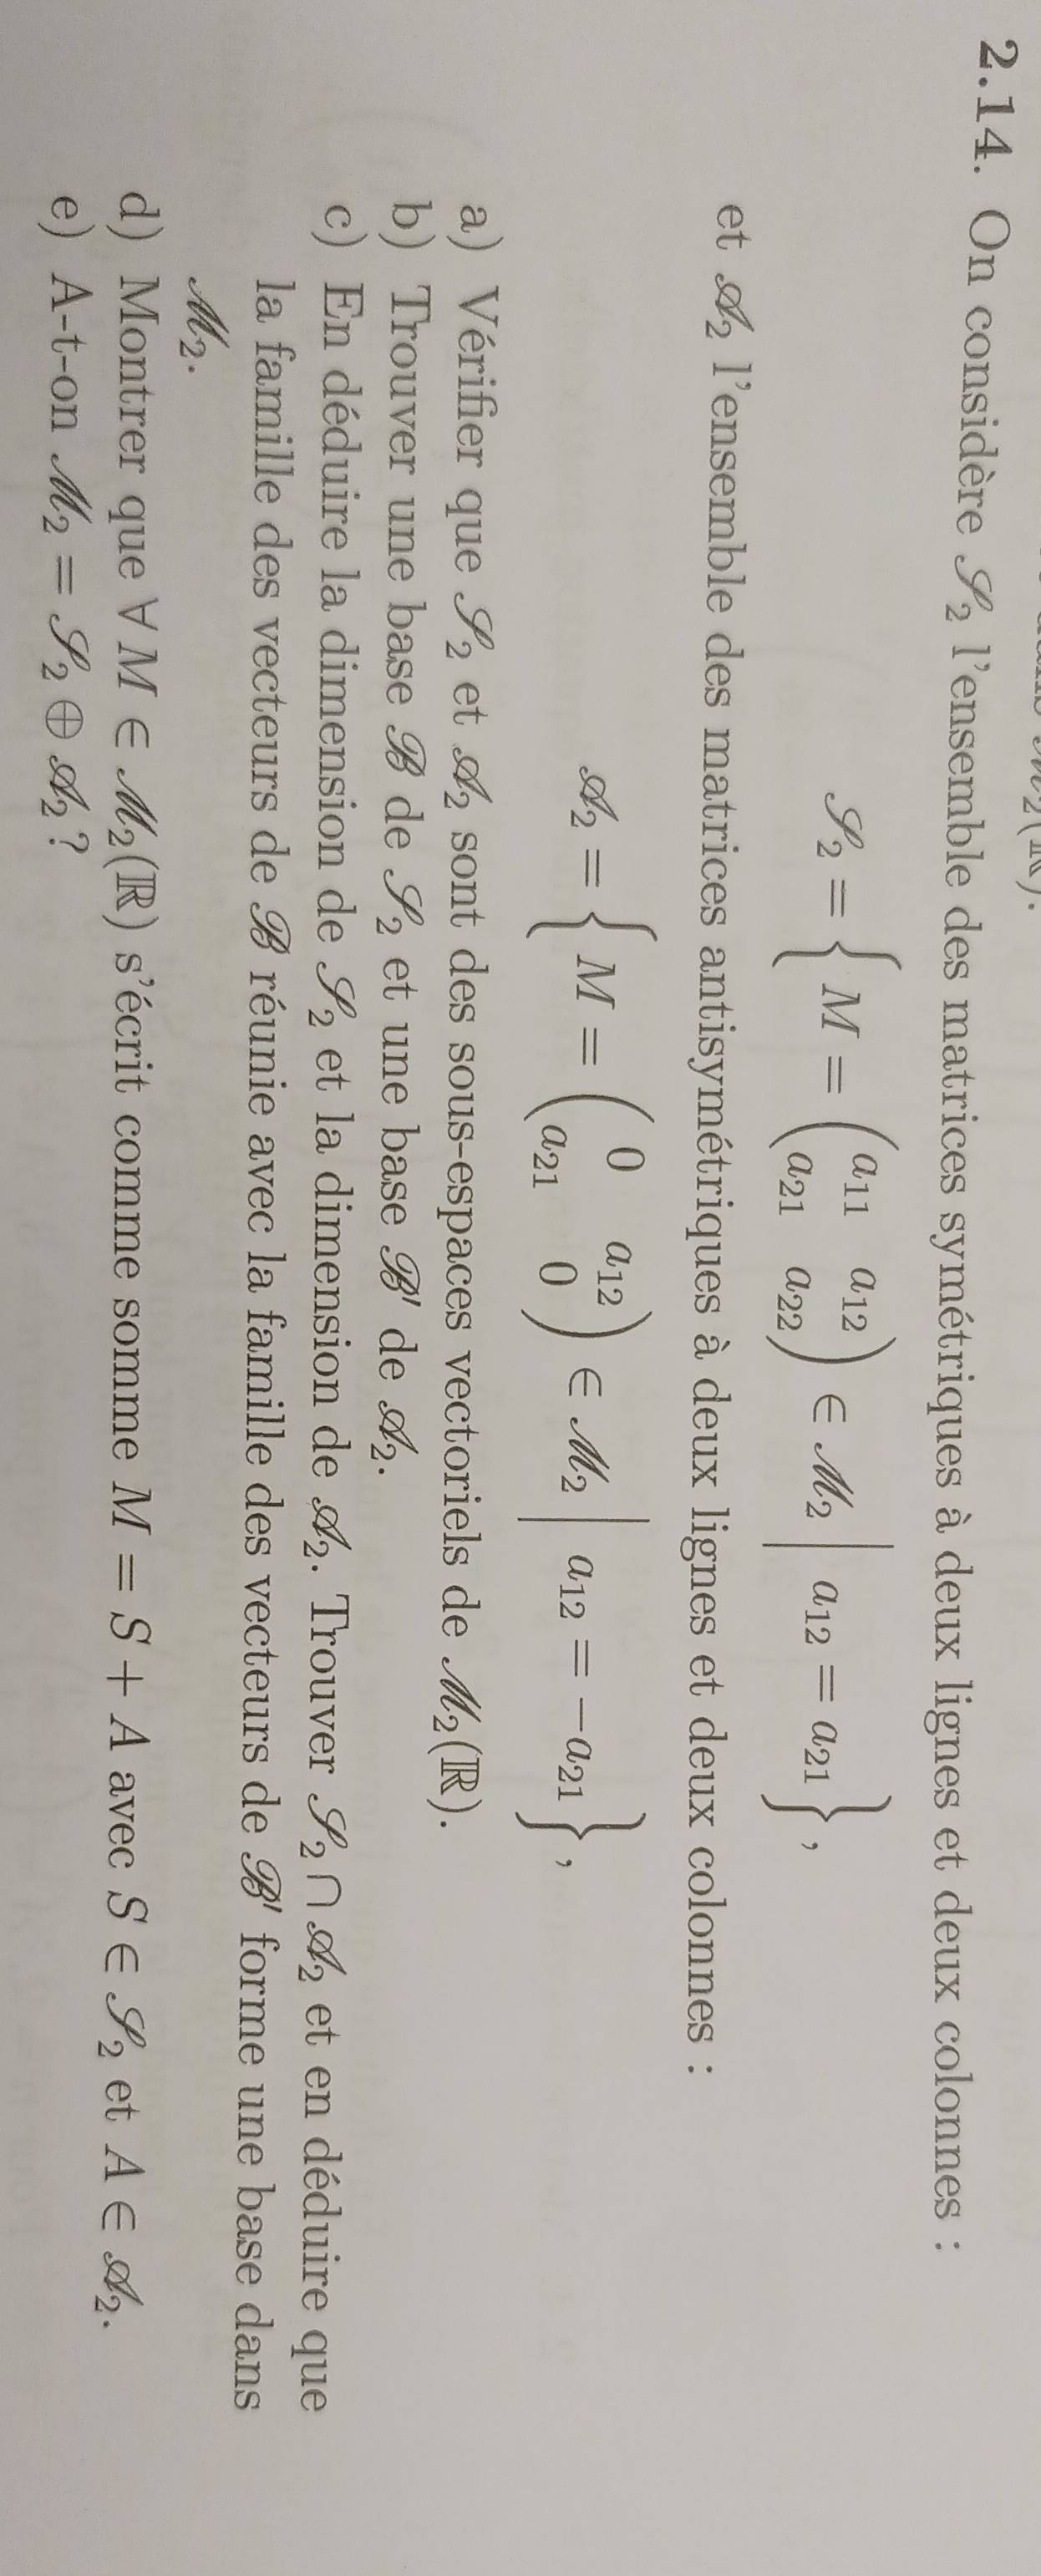 2.14. On considère 𝒮₂ l'ensemble des matrices symétriques à deux lignes et deux colonnes :
𝒮₂ = { M = ( a₁₁ a₁₂ ; a₂₁ a₂₂ ) ∈ ℳ₂ | a₁₂ = a₂₁ },
et 𝒜₂ l'ensemble des matrices antisymétriques à deux lignes et deux colonnes :
𝒜₂ = { M = ( 0 a₁₂ ; a₂₁ 0 ) ∈ ℳ₂ | a₁₂ = −a₂₁ },
a) Vérifier que 𝒮₂ et 𝒜₂ sont des sous-espaces vectoriels de ℳ₂(ℝ).
b) Trouver une base ℬ de 𝒮₂ et une base ℬ′ de 𝒜₂.
c) En déduire la dimension de 𝒮₂ et la dimension de 𝒜₂. Trouver 𝒮₂ ∩ 𝒜₂ et en déduire que
la famille des vecteurs de ℬ réunie avec la famille des vecteurs de ℬ′ forme une base dans
ℳ₂.
d) Montrer que ∀ M ∈ ℳ₂(ℝ) s'écrit comme somme M = S + A avec S ∈ 𝒮₂ et A ∈ 𝒜₂.
e) A-t-on ℳ₂ = 𝒮₂ ⊕ 𝒜₂ ?